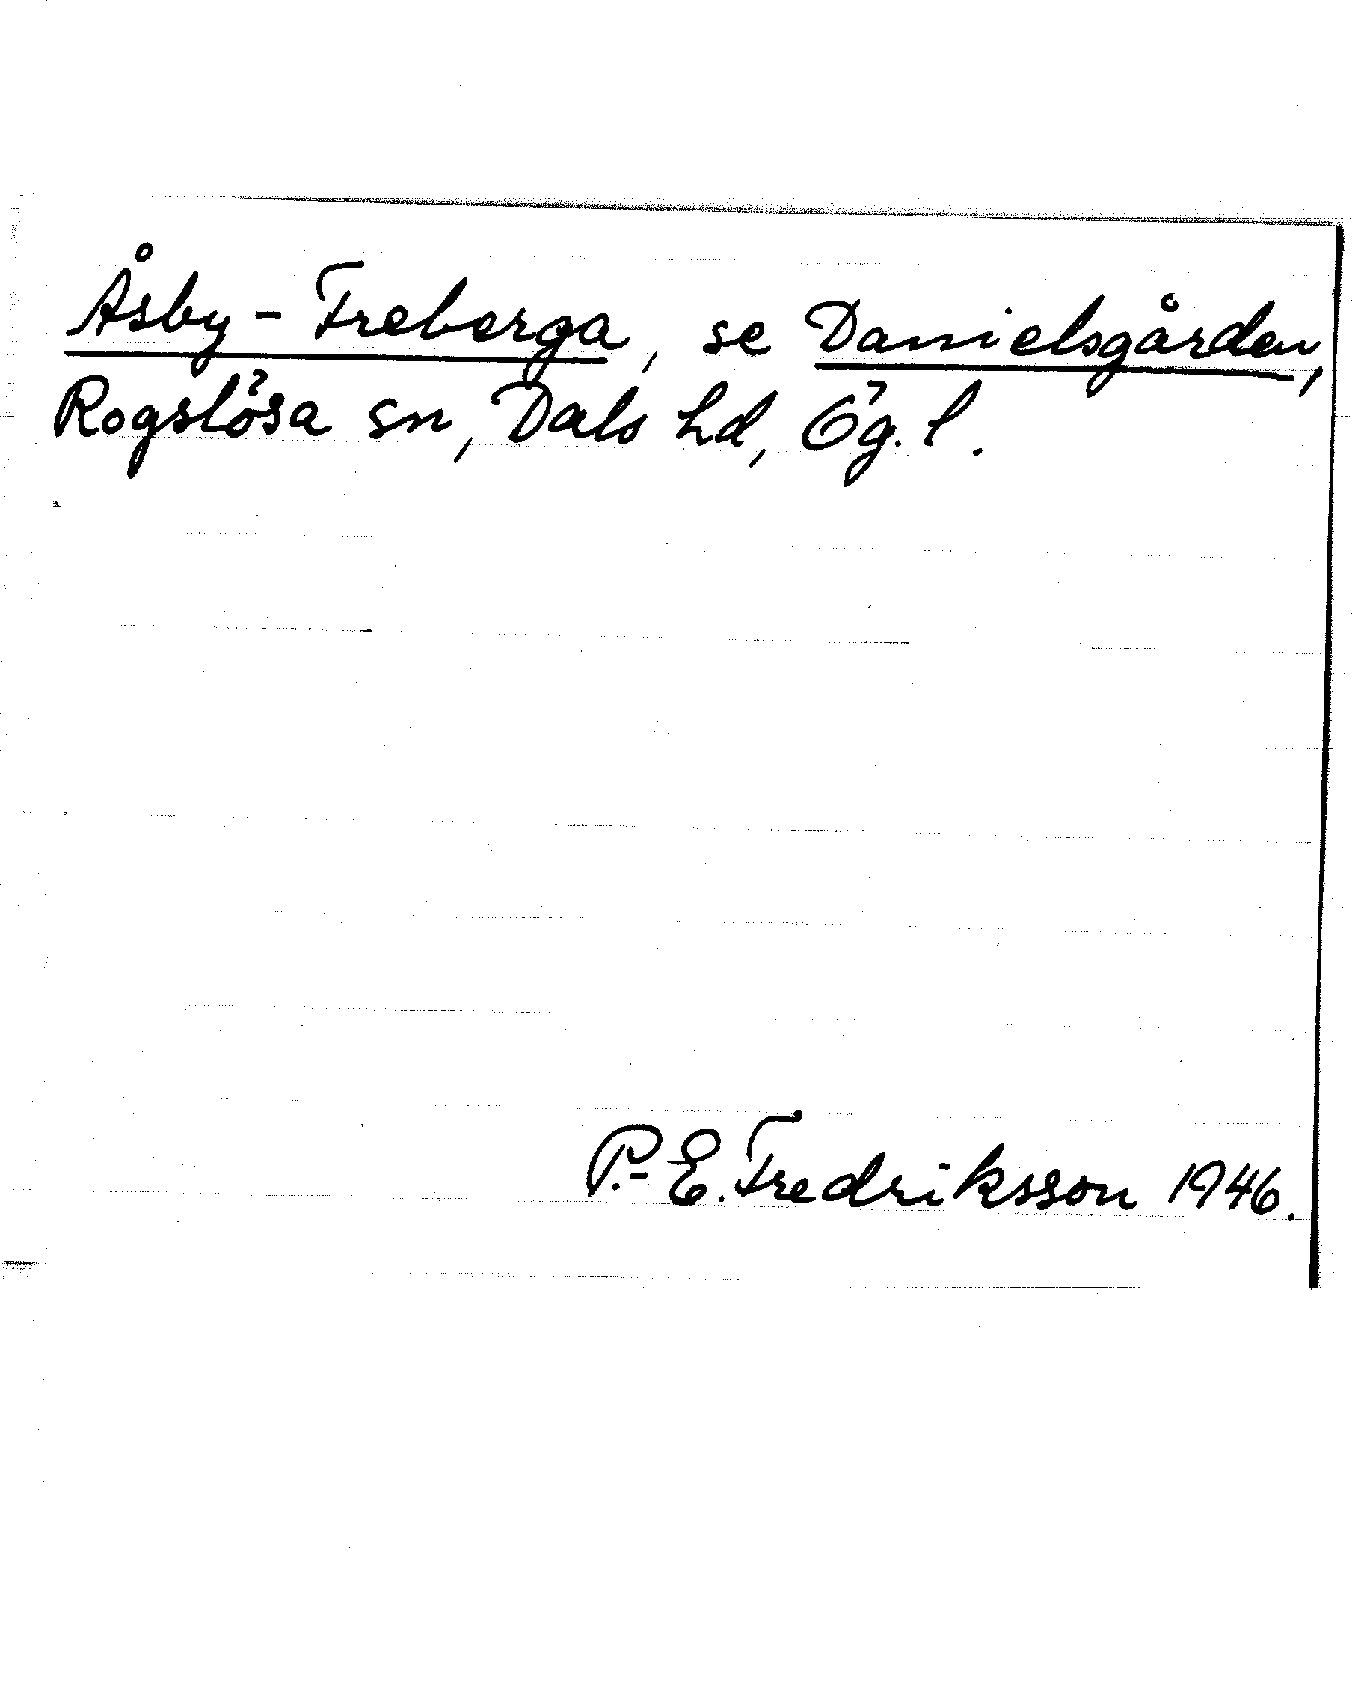 Åsby-Freberga, se Danielsgården,
Rogslösa sn, Dals hd, Ög. l.
P.-E. Fredriksson 1946.